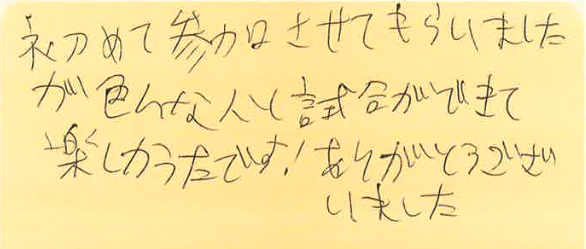 初めて参加させてもらいました
が色んな人と試合ができて
楽しかったです！ありがとうござい
いました